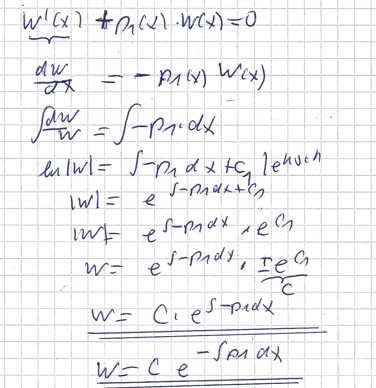 w'(x) + p₁(x) · w(x) = 0
dw/dx = - p₁(x) w(x)
∫ dw/w = ∫ -p₁ · dx
ln|w| = ∫ -p₁ dx + C₁ | e hoch
|w| = e^(∫ -p₁ dx + C₁)
|w| = e^(∫ -p₁ dx) · e^(C₁)
w = e^(∫ -p₁ dx) · ± e^(C₁)
C
w = C · e^(∫ -p₁ dx)
w = C e^(-∫ p₁ dx)